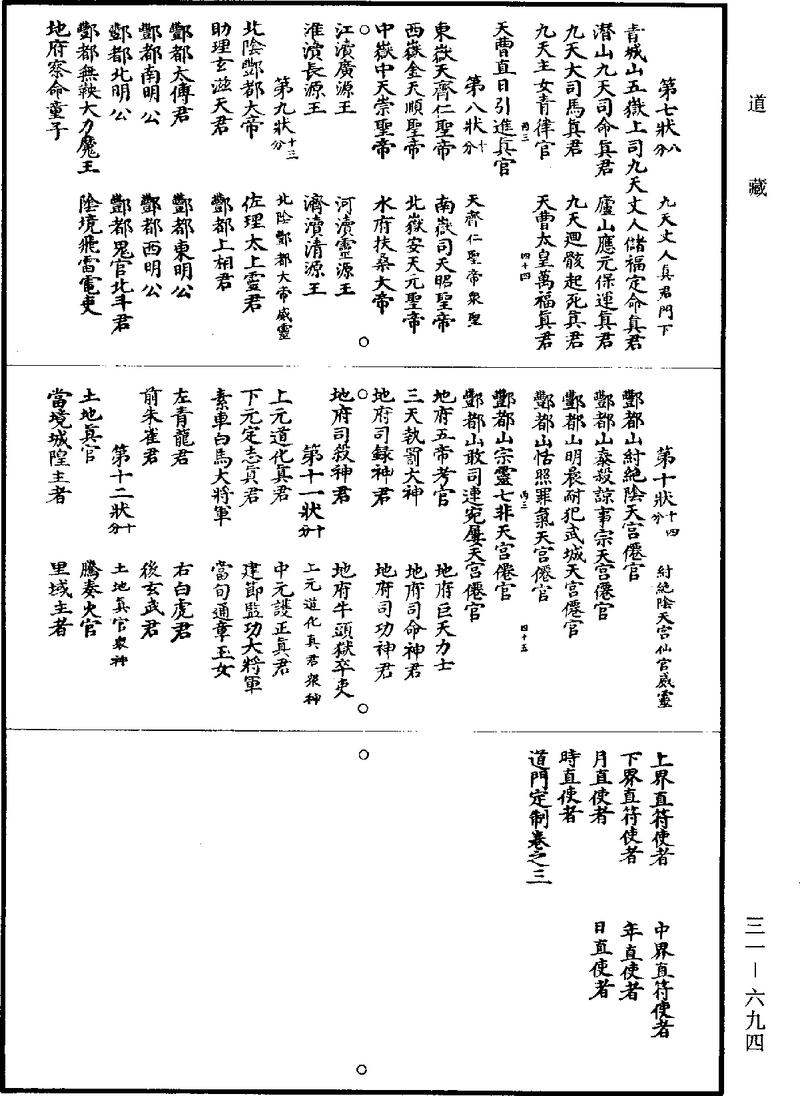 道藏
第七狀八分 九天丈人真君門下
青城山五嶽上司九天丈人儲福定命真君
潛山九天司命真君 廬山應元保運真君
九天大司馬真君 九天迴骸起死真君
九天主女青律官 天曹太皇萬福真君
丙三 四十四
天曹直日引進真官
第八狀十分 天齊仁聖帝衆聖
東嶽天齊仁聖帝 南嶽司天昭聖帝
西嶽金天順聖帝 北嶽安天元聖帝
中嶽中天崇聖帝 水府扶桑大帝
江瀆廣源王 河瀆靈源王
淮瀆長源王 濟瀆清源王
第九狀十三分 北陰酆都大帝威靈
北陰酆都大帝 佐理太上靈君
助理玄滋天君 酆都上相君
酆都太傅君 酆都東明公
酆都南明公 酆都西明公
酆都北明公 酆都鬼官北斗君
酆都無鞅大力魔王 陰境飛雷電吏
地府察命童子
第十狀十四分 紂絕陰天宮仙官威靈
酆都山紂絕陰天宮僊官
酆都山泰殺諒事宗天宮僊官
酆都山明晨耐犯武城天宮僊官
酆都山恬照罪氣天宮僊官
丙三 四十五
酆都山宗靈七非天宮僊官
酆都山敢司連宛屢天宮僊官
地府五帝考官 地府巨天力士
三天執罰大神 地府司命神君
地府司録神君 地府司功神君
地府司殺神君 地府牛頭獄卒吏
第十一狀十分 上元道化真君衆神
上元道化真君 中元護正真君
下元定志真君 建節監功大將軍
素車白馬大將軍 當旬通章玉女
左青龍君 右白虎君
前朱雀君 後玄武君
第十二狀十分 土地真官衆神
土地真官 騰奏火官
當境城隍主者 里域主者
上界直符使者 中界直符使者
下界直符使者 年直使者
月直使者 日直使者
時直使者
道門定制卷之三
三一－六九四